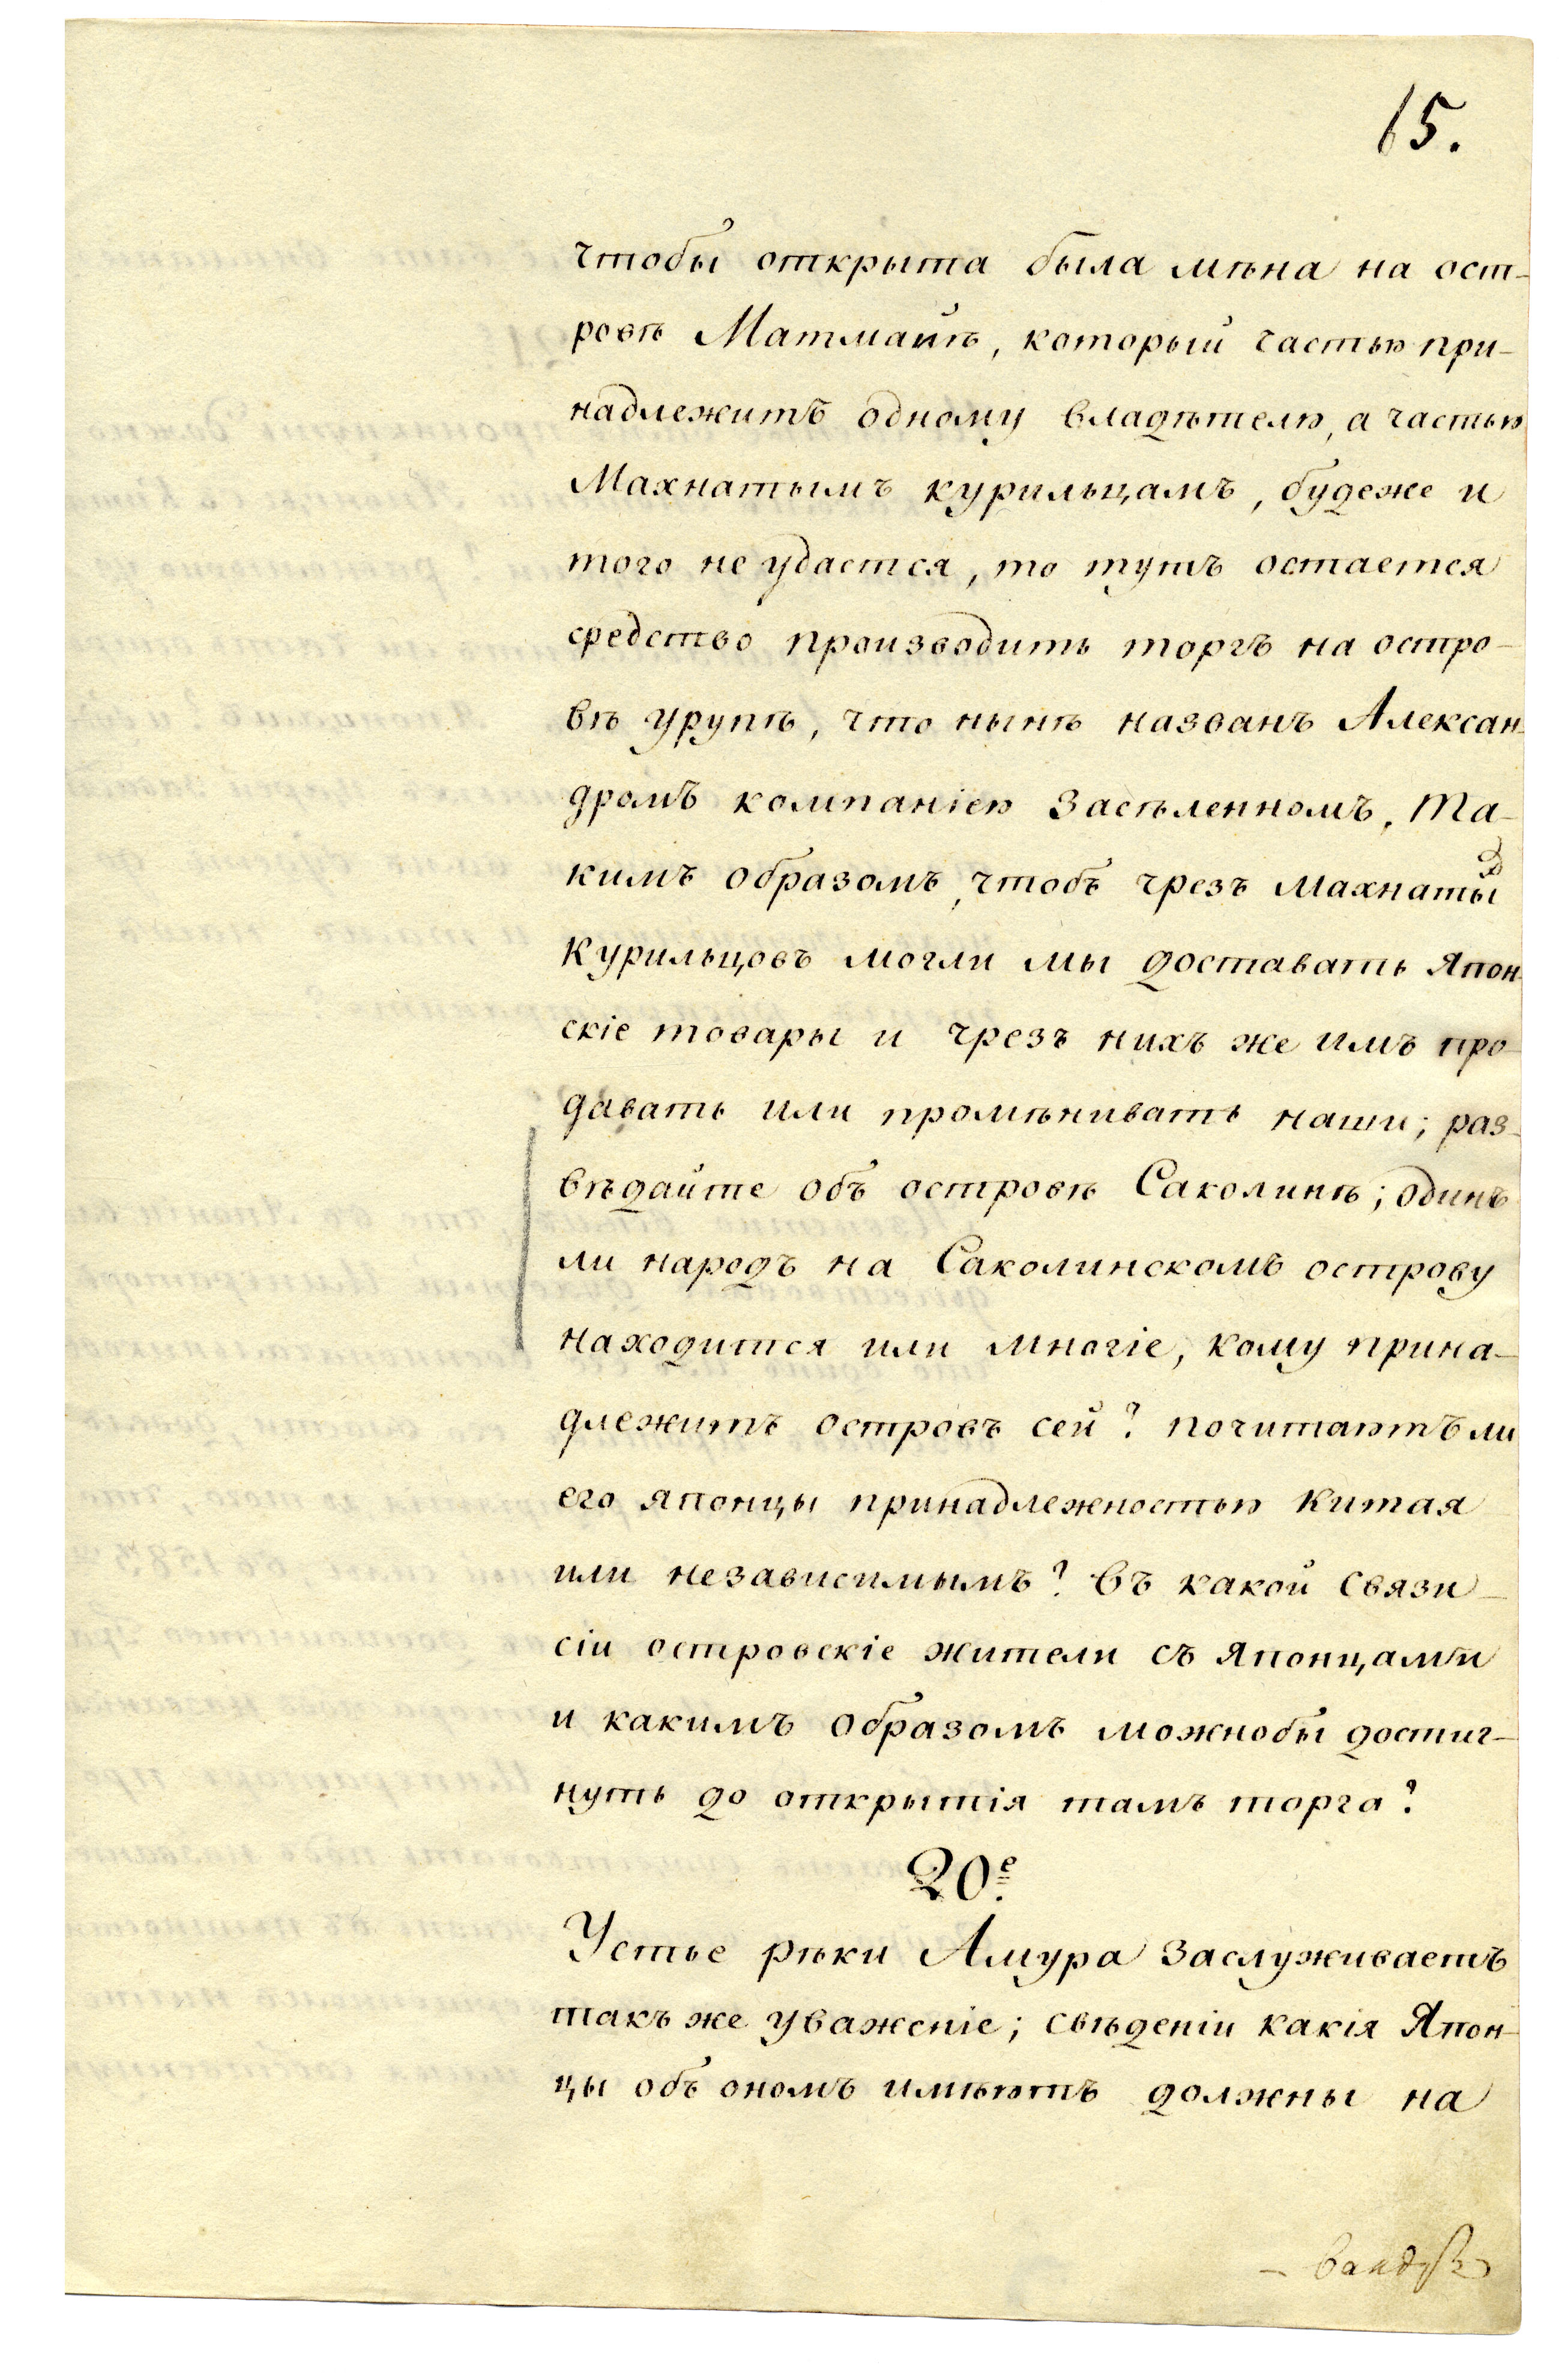 15.
чтобы открыта была мѣна на ост-
ровѣ Матмайѣ, который частью при-
надлежитъ одному владѣтелю, а частью
Махнатымъ курильцамъ, будеже и
того не удастся, то тутъ остается
средство производить торгъ на остро-
вѣ Урупѣ, что нынѣ названъ Алексан-
дромъ компаніею засѣленномъ, Та-
кимъ образомъ, чтобъ чрезъ махнаты
х
курильцовъ могли мы доставать Япон-
скіе товары и чрезъ нихъ же имъ про-
давать или промѣнивать наши; раз-
вѣдайте объ островѣ Саколинѣ; одинъ
ли народъ на Саколинскомъ острову
находится или многіе, кому прина-
длежитъ островъ сей? почитаютъ ли
его японцы принадлежностью Китая
или независимымъ? въ какой связи
сіи островскіе жители съ Японцами
и какимъ образомъ можнобы достиг-
нуть до открытія тамъ торга?
20е.
Устье рѣки Амура заслуживаетъ
такъ же уваженіе; свѣденіи какія Япон-
цы объ ономъ имѣютъ должны на